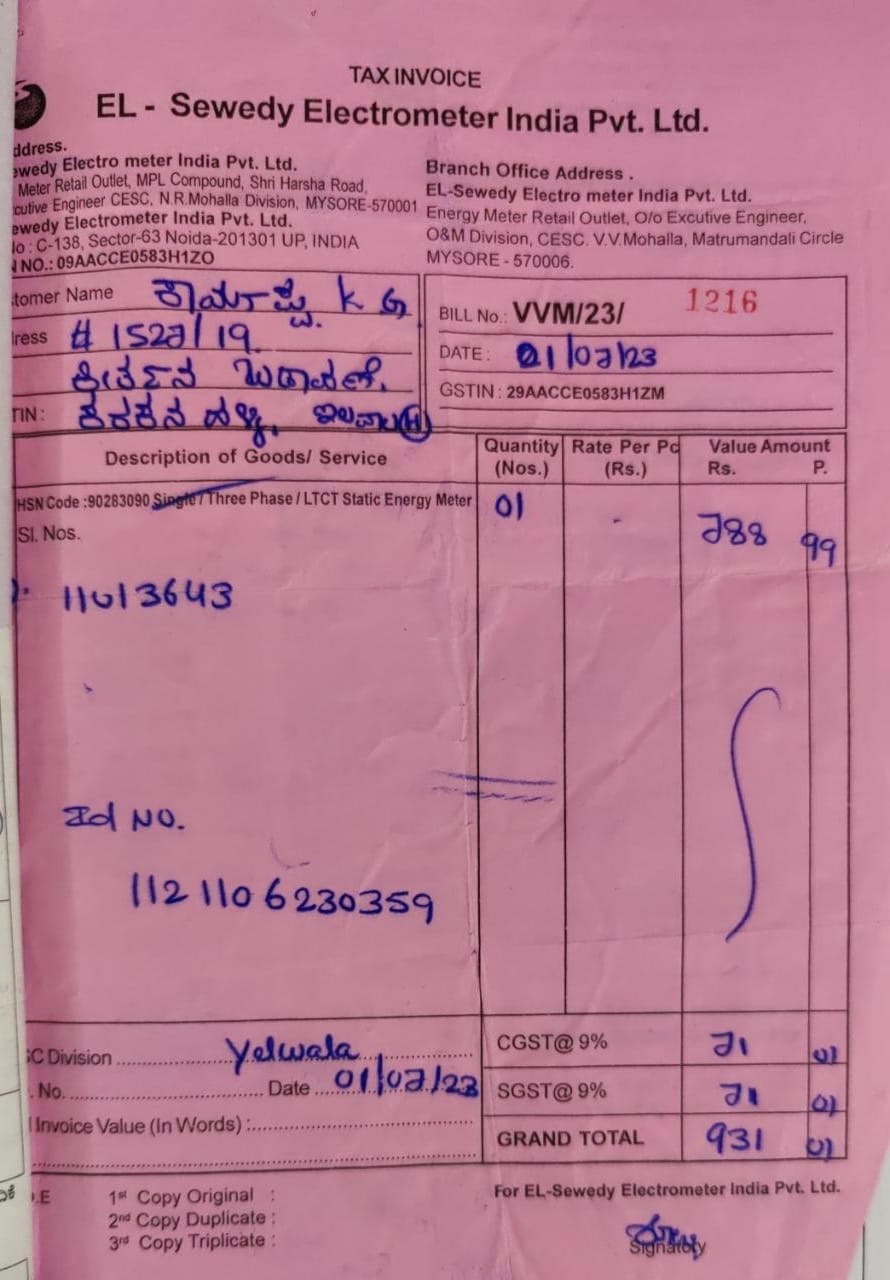 TAX INVOICE
EL - Sewedy Electrometer India Pvt. Ltd.
ddress.
ewedy Electro meter India Pvt. Ltd.
Meter Retail Outlet, MPL Compound, Shri Harsha Road,
cutive Engineer CESC, N.R.Mohalla Division, MYSORE-570001
ewedy Electrometer India Pvt. Ltd.
No : C-138, Sector-63 Noida-201301 UP, INDIA
N NO.: 09AACCE0583H1ZO
Branch Office Address .
EL-Sewedy Electro meter India Pvt. Ltd.
Energy Meter Retail Outlet, O/o Excutive Engineer,
O&M Division, CESC. V.V.Mohalla, Matrumandali Circle
MYSORE - 570006.
tomer Name K G
ress # 1527/19
TIN : (H)
BILL No.: VVM/23/ 1216
DATE : 01/07/23
GSTIN : 29AACCE0583H1ZM
Description of Goods/ Service Quantity (Nos.) Rate Per Pc (Rs.) Value Amount Rs. P.
HSN Code :90283090 Single / Three Phase / LTCT Static Energy Meter 01 - 788 99
Sl. Nos.
11013643
Id No.
1121106230359
SC Division Yelwala
. No. Date 01/07/23
l Invoice Value (In Words) :
CGST@ 9% 71 01
SGST@ 9% 71 01
GRAND TOTAL 931 01
.E 1st Copy Original :
2nd Copy Duplicate :
3rd Copy Triplicate :
For EL-Sewedy Electrometer India Pvt. Ltd.
Signatoty